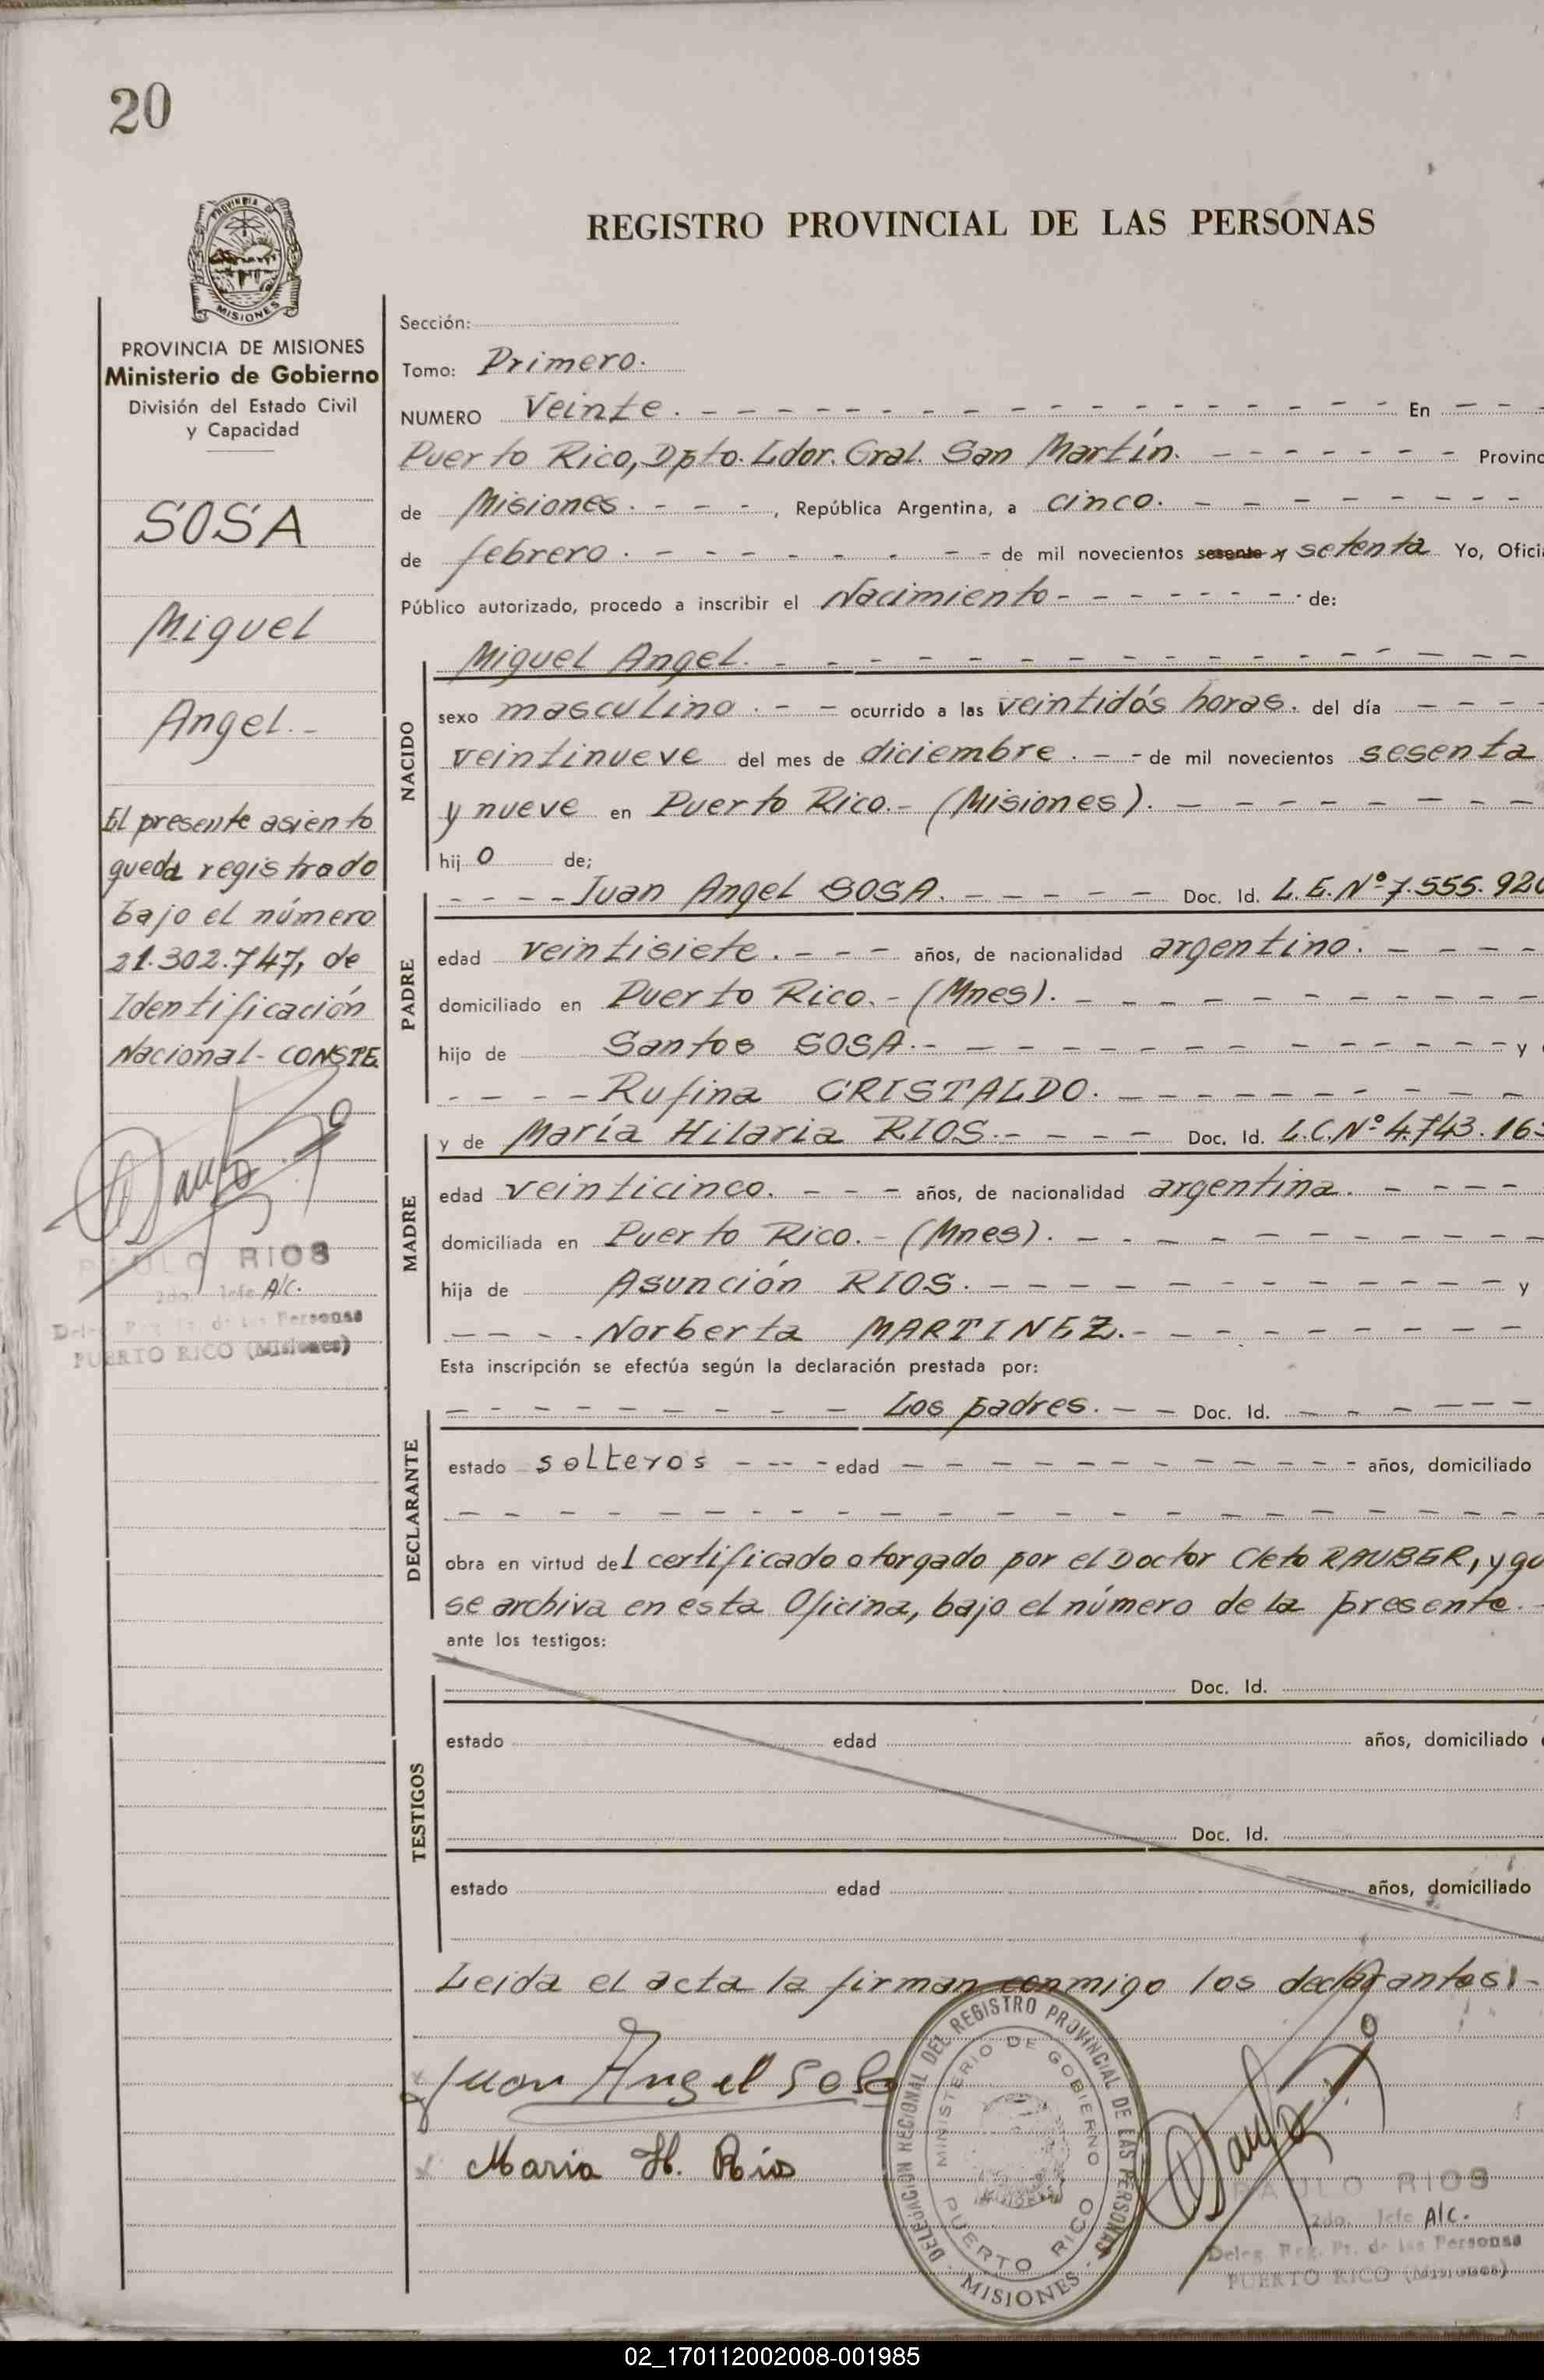 20
PROVINCIA DE
MISIONES
PROVINCIA DE MISIONES
Ministerio de Gobierno
División del Estado Civil
y Capacidad
SOSA
Miguel
Angel.-
El presente asiento
queda registrado
bajo el número
21.302.747, de
Identificación
Nacional- CONSTE
PAULO RIOS
2do. Jefe A/C.
Deleg. Reg. Pr. de las Personas
PUERTO RICO (Misiones)
REGISTRO PROVINCIAL DE LAS PERSONAS
Sección:
Tomo: Primero.
NUMERO Veinte. - - - En - - -
Puerto Rico, Dpto. Ldor. Gral. San Martín. - - - Provinc
de Misiones. - - -, República Argentina, a cinco. - - -
de febrero. - - - de mil novecientos sesenta y setenta Yo, Ofici
Público autorizado, procedo a inscribir el Nacimiento - - - de:
NACIDO
Miguel Angel. - - -
sexo masculino. - - ocurrido a las veintidós horas. del día - - -
veintinueve del mes de diciembre. - - de mil novecientos sesenta
y nueve en Puerto Rico.- (Misiones). - - -
hij o de;
PADRE
- - - Juan Angel SOSA. - - - Doc. Id. L.E.Nº 7.555.920
edad veintisiete. - - - años, de nacionalidad argentino. - - -
domiciliado en Puerto Rico.- (Mnes). - - -
hijo de Santos SOSA.- - - - y
- - - Rufina CRISTALDO. - - -
MADRE
y de María Hilaria RIOS.- - - - Doc. Id. L.C.Nº 4.743.163
edad veinticinco. - - - años, de nacionalidad argentina. - - -
domiciliada en Puerto Rico.- (Mnes). - - -
hija de Asunción RIOS. - - - y
- - - Norberta MARTINEZ.- - - -
Esta inscripción se efectúa según la declaración prestada por:
DECLARANTE
- - - Los padres. - - Doc. Id. - - -
estado solteros - - - edad - - - años, domiciliado
- - -
obra en virtud del certificado otorgado por el Doctor Cleto RAUBER, y qu
se archiva en esta Oficina, bajo el número de la presente. -
ante los testigos:
TESTIGOS
Doc. Id.
estado edad años, domiciliado
Doc. Id.
estado edad años, domiciliado
Leida el acta la firman conmigo los declarantes.-
Juan Angel Sosa
Maria H. Rios
DELEGACION REGIONAL DEL REGISTRO PROVINCIAL DE LAS PERSONAS
MINISTERIO DE GOBIERNO
PUERTO RICO
MISIONES
PAULO RIOS
2do. Jefe A/C.
Deleg. Reg. Pr. de las Personas
PUERTO RICO (Misiones)
02_170112002008-001985